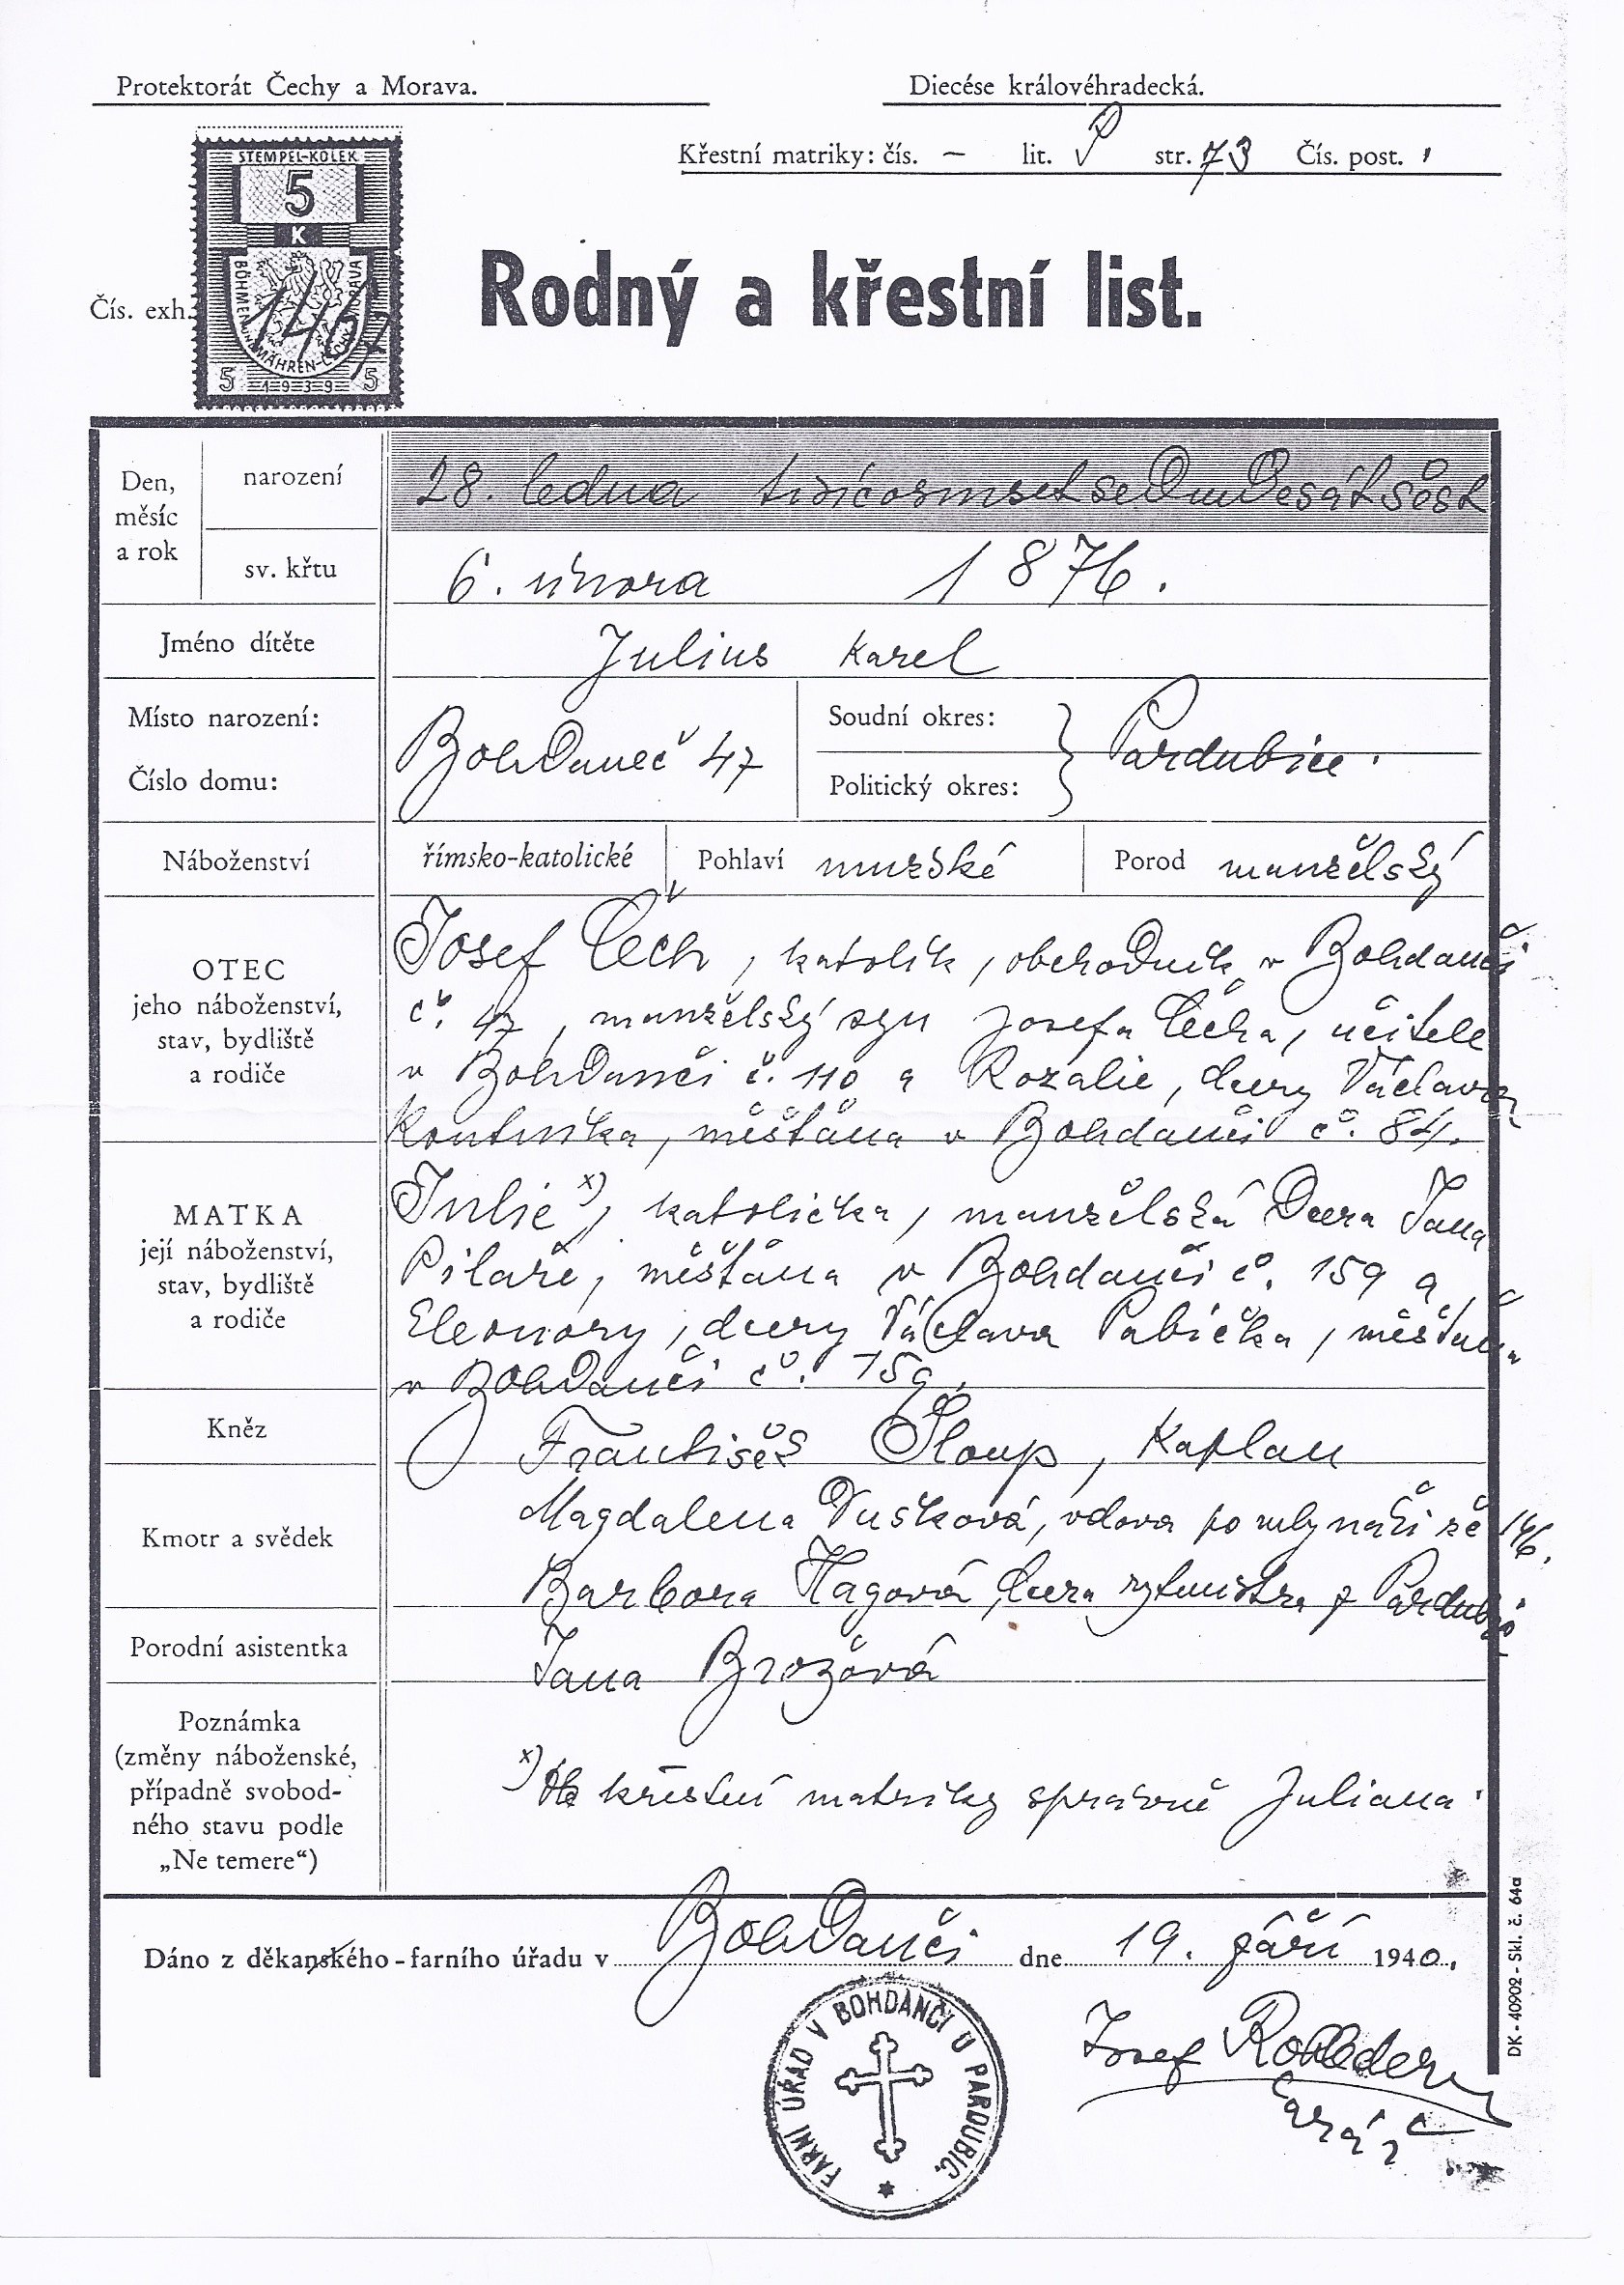 Protektorát Čechy a Morava.
Diecése královéhradecká.
Křestní matriky: čís. — lit. P str. 73 Čís. post.
STEMPEL-KOLEK
5
K
BÖHMEN U. MÄHREN-ČECHY A MORAVA
5 1939 5
Čís. exh.
Rodný a křestní list.
Den,
měsíc
a rok
narození
28. ledna tisícosmsetsedmdesátšest
sv. křtu
6. února 1876.
Jméno dítěte
Julius Karel
Místo narození:
Číslo domu:
Bohdaneč 47
Soudní okres:
Politický okres:
Pardubice.
Náboženství
římsko-katolické
Pohlaví mužské
Porod manželský
OTEC
jeho náboženství,
stav, bydliště
a rodiče
Josef Čech, katolík, obchodník v Bohdanči
č. 47, manželský syn Josefa Čecha, učitele
v Bohdanči č. 110 a Rozalie, dcery Václava
měšťana v Bohdanči č. 84.
MATKA
její náboženství,
stav, bydliště
a rodiče
Julie x), katolička, manželská dcera Jana
Pilaře, měšťana v Bohdanči č. 159 a
Eleonory, dcery Václava Pabička, měšťana
v Bohdanči č. 159.
Kněz
František Sloup, kaplan
Kmotr a svědek
Magdalena Dušková, vdova po mlynáři z č. 146.
Barbora Hagová, dcera rytmistra z Pardubic
Porodní asistentka
Jana Brožová
Poznámka
(změny náboženské,
případně svobod-
ného stavu podle
„Ne temere“)
x) Dle křestní matriky správně Juliana.
Dáno z děkanského-farního úřadu v Bohdanči dne 19. září 1940.
FARNÍ ÚŘAD V BOHDANČI U PARDUBIC.
Josef
farář
DK - 40902 - Skl. č. 64a